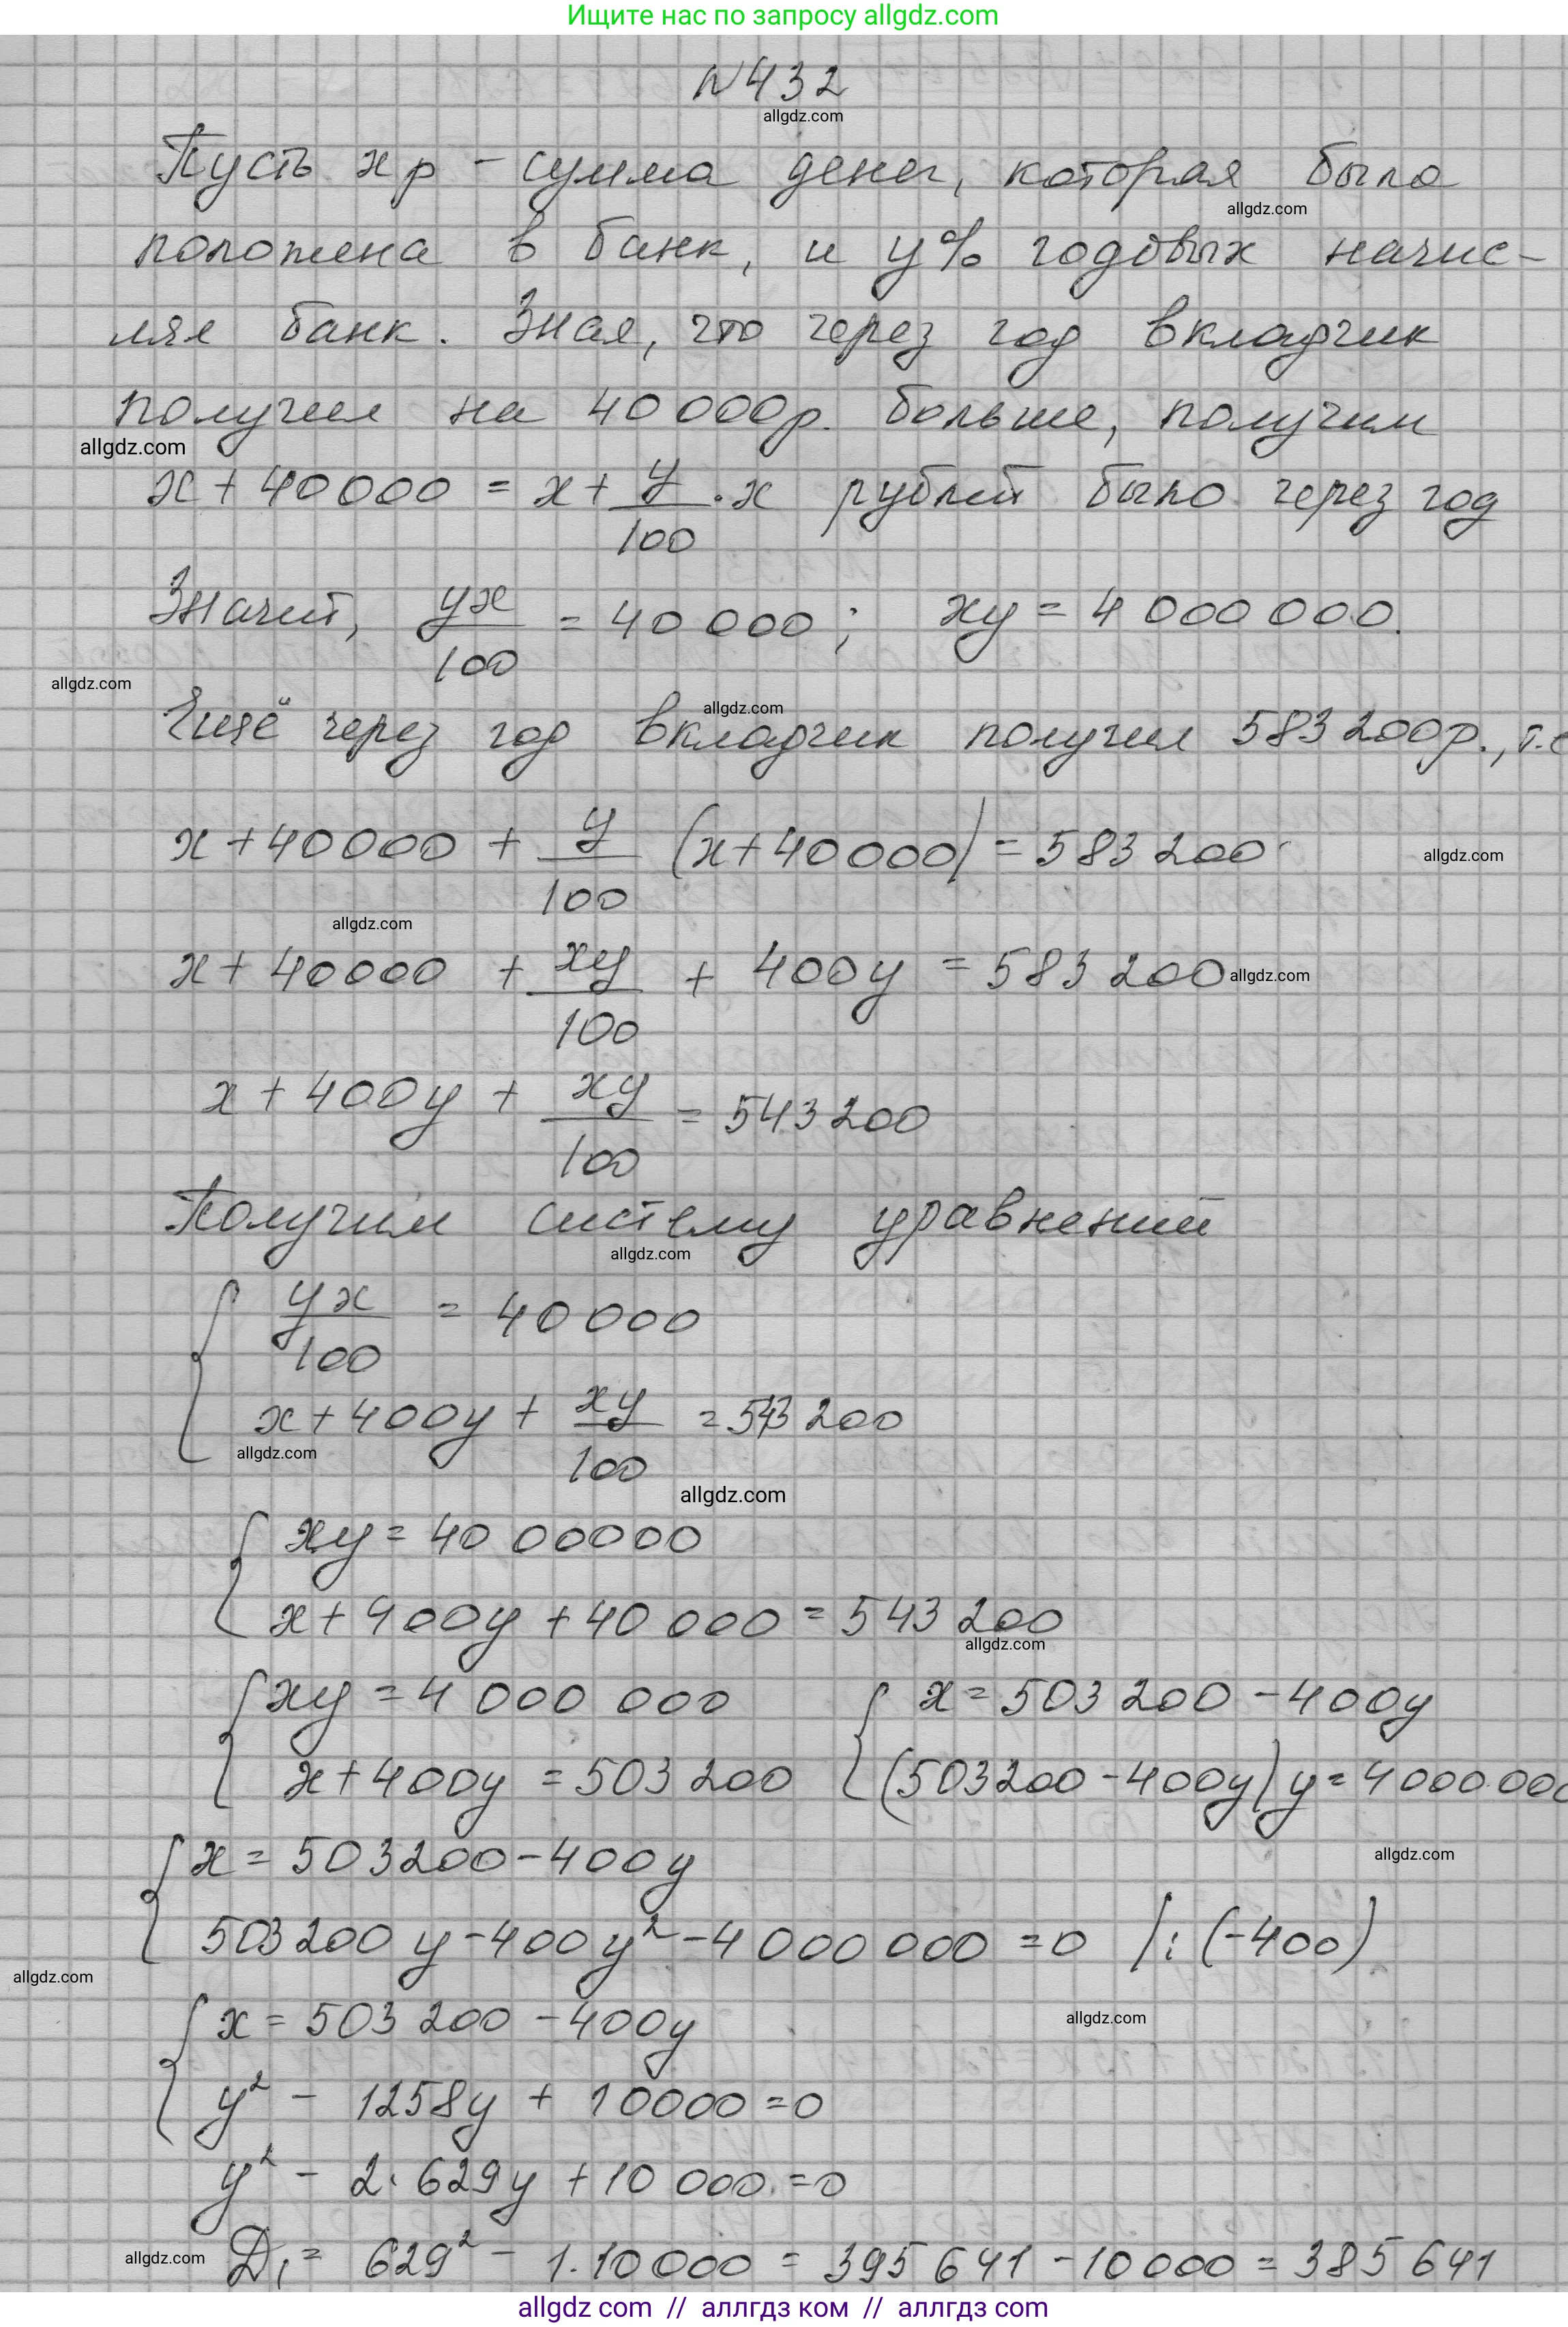 Ищите нас по запросу allgdz.com
№432
allgdz.com
Пусть x р – сумма денег, которая была
allgdz.com
положена в банк, и y% годовых начис-
лял банк. Зная, что через год вкладчик
получил на 40 000р. больше, получим
allgdz.com
x + 40000 = x + y/100 · x рублей было через год
Значит, yx/100 = 40 000; xy = 4 000 000.
allgdz.com
allgdz.com
Ещё через год вкладчик получил 583 200р., т.е
x + 40000 + y/100 (x + 40000) = 583 200
allgdz.com
allgdz.com
x + 40000 + xy/100 + 400y = 583 200
allgdz.com
x + 400y + xy/100 = 543 200
Получим систему уравнений
allgdz.com
{ yx/100 = 40 000
x + 400y + xy/100 = 543 200
allgdz.com
allgdz.com
{ xy = 40 00000
x + 400y + 40 000 = 543 200
allgdz.com
{ xy = 4 000 000 { x = 503 200 – 400y
x + 400y = 503 200 (503200 – 400y) y = 4000 000
{ x = 503200 – 400y
allgdz.com
503200 y – 400y² – 4 000 000 = 0 | : (–400)
allgdz.com
{ x = 503 200 – 400y
allgdz.com
y² – 1258y + 10000 = 0
y² – 2 · 629y + 10 000 = 0
allgdz.com
D₁ = 629² – 1 · 10 000 = 395 641 – 10 000 = 385 641
allgdz com // аллгдз ком // аллгдз com